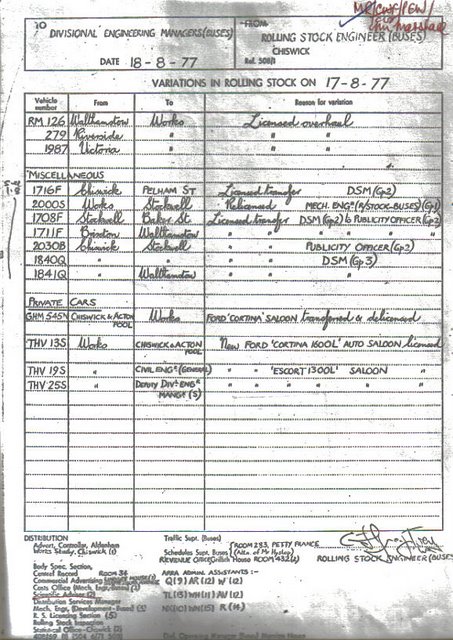 TO
DIVISIONAL ENGINEERING MANAGERS (BUSES)
DATE 18-8-77
FROM
ROLLING STOCK ENGINEER (BUSES)
CHISWICK
Ref. 508/1
VARIATIONS IN ROLLING STOCK ON 17-8-77
Vehicle number From To Reason for variation
RM 126 Walthamstow Works Licensed overhaul
279 Riverside " "
1987 Victoria " "
MISCELLANEOUS
1716F Chiswick PELHAM ST Licensed transfer DSM (Gp2)
2000S Works Stockwell Relicensed MECH. ENGR (R/STOCK-BUSES) (Gp1)
1708F Stockwell Baker St. Licensed transfer DSM (Gp2) to PUBLICITY OFFICER (Gp2)
1711F Brixton Walthamstow " " " " "
2030B Chiswick Stockwell " " PUBLICITY OFFICER (Gp2)
1840Q " " " " DSM (Gp3)
1841Q " Walthamstow " " "
PRIVATE CARS
GHM 545N CHISWICK & ACTON POOL Works FORD 'CORTINA' SALOON transferred & delicensed
THV 13S Works CHISWICK & ACTON POOL New FORD 'CORTINA 1600L' AUTO SALOON licensed
THV 19S " CIVIL ENGR (GENERAL) " " 'ESCORT 1300L' SALOON "
THV 25S " DEPUTY DIVL ENGR MANGR (S) " " " " "
DISTRIBUTION
Advert. Controller, Aldenham
Works Study, Chiswick (1)
Body Spec. Section,
Central Record ROOM 34
Commercial Advertising
Costs Office (Mech. Engr, Buses)
Scientific Adviser
Distribution Services Manager
Mech. Engr. (Development-Buses)
R. S. Licensing Section (5)
Rolling Stock Inspection
Statistical Office-Chiswick
Traffic Supt. (Buses) ROOM 283, PETTY FRANCE
Schedules Supt. (Buses)
REVENUE OFFICE, Griffith House ROOM 432
AREA ADMIN. ASSISTANTS :-
Q (19) AR (12) W (12)
ROLLING STOCK ENGINEER (BUSES)